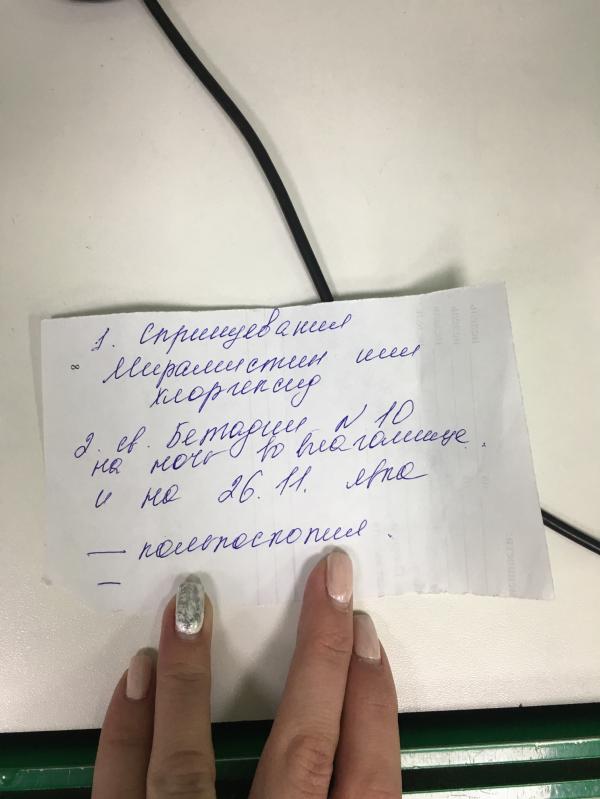 1. Спринцевания
Мирамистин или
хлоргексид
2. св. Бетадин N 10
на ночь во влагалище.
и на 26.11. явка
— кольпоскопия.
—